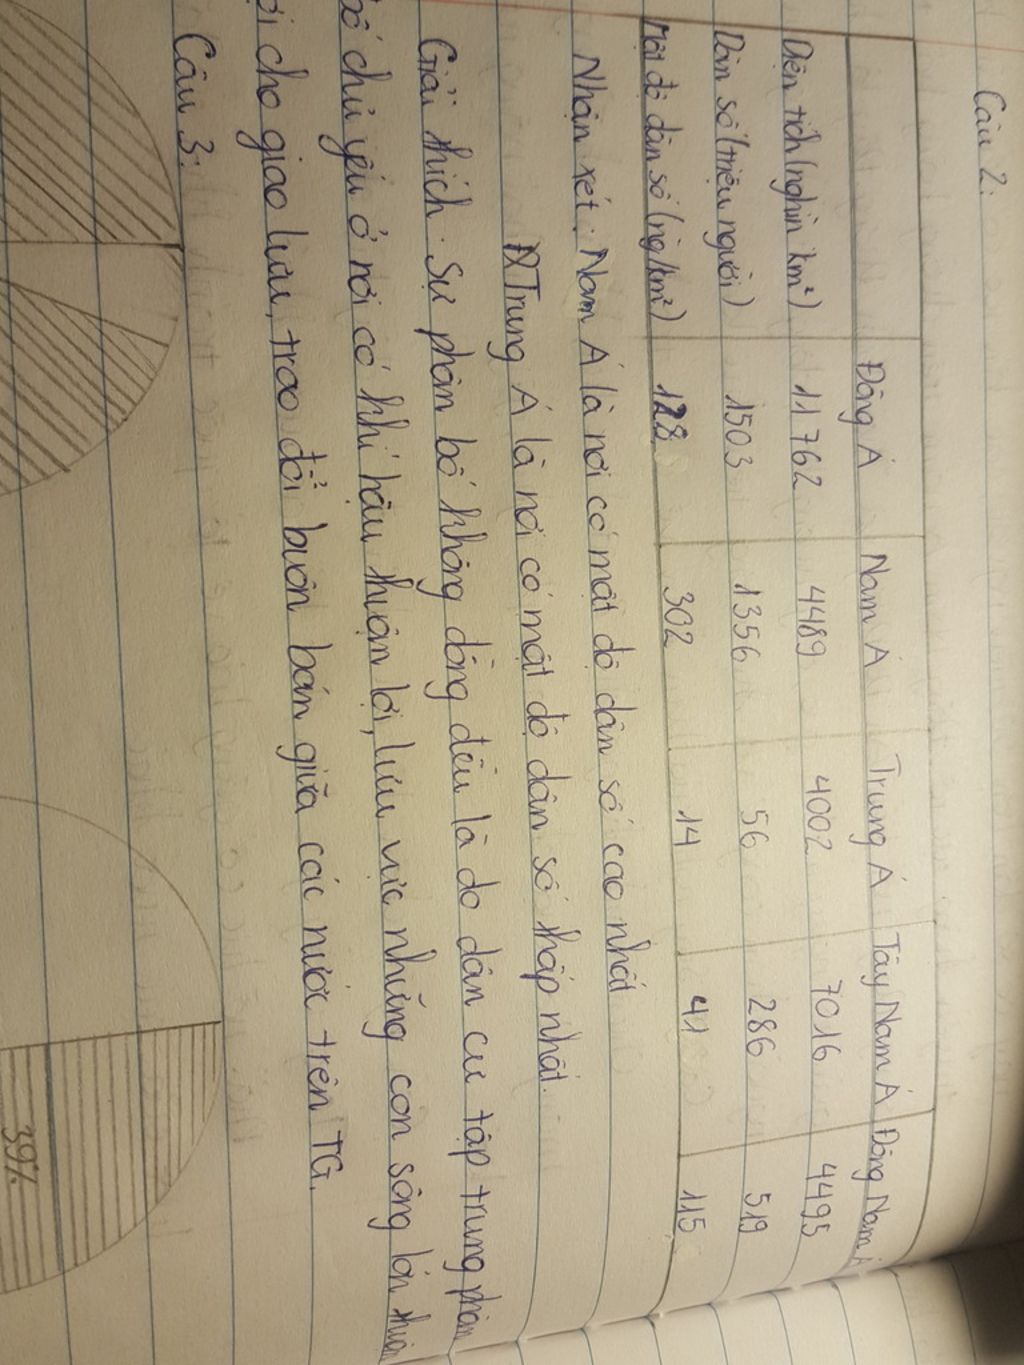 Câu 2:
Đông Á Nam Á Trung Á Tây Nam Á Đông Nam Á
Diện tích (nghìn km²) 11762 4489 4002 7016 4495
Dân số (triệu người) 1503 1356 56 286 519
Mật độ dân số (ng/km²) 128 302 14 41 115
Nhận xét: Nam Á là nơi có mật độ dân số cao nhất
Trung Á là nơi có mật độ dân số thấp nhất.
Giải thích: Sự phân bố không đồng đều là do dân cư tập trung phân
bố chủ yếu ở nơi có khí hậu thuận lợi, lưu vực những con sông lớn thuận
lợi cho giao lưu, trao đổi buôn bán giữa các nước trên TG.
Câu 3:
39%